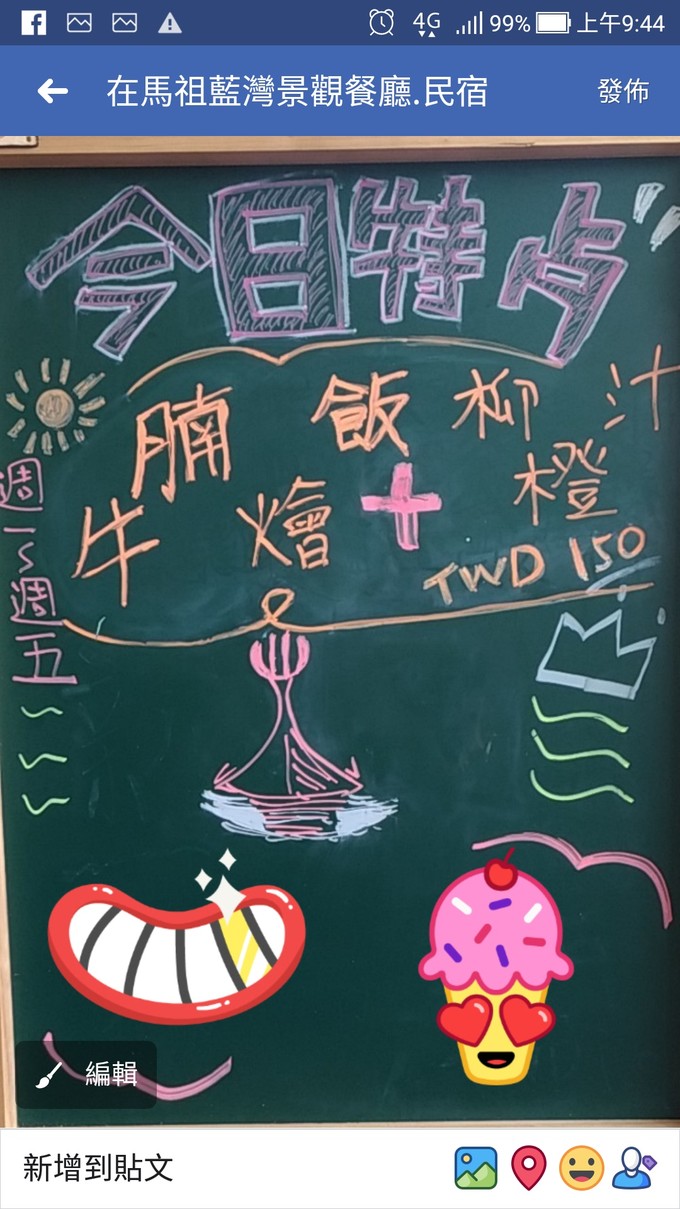 4G 99% 上午9:44
在馬祖藍灣景觀餐廳.民宿 發佈
今日特歺
牛腩燴飯+柳橙汁
TWD 150
週一~週五
編輯
新增到貼文